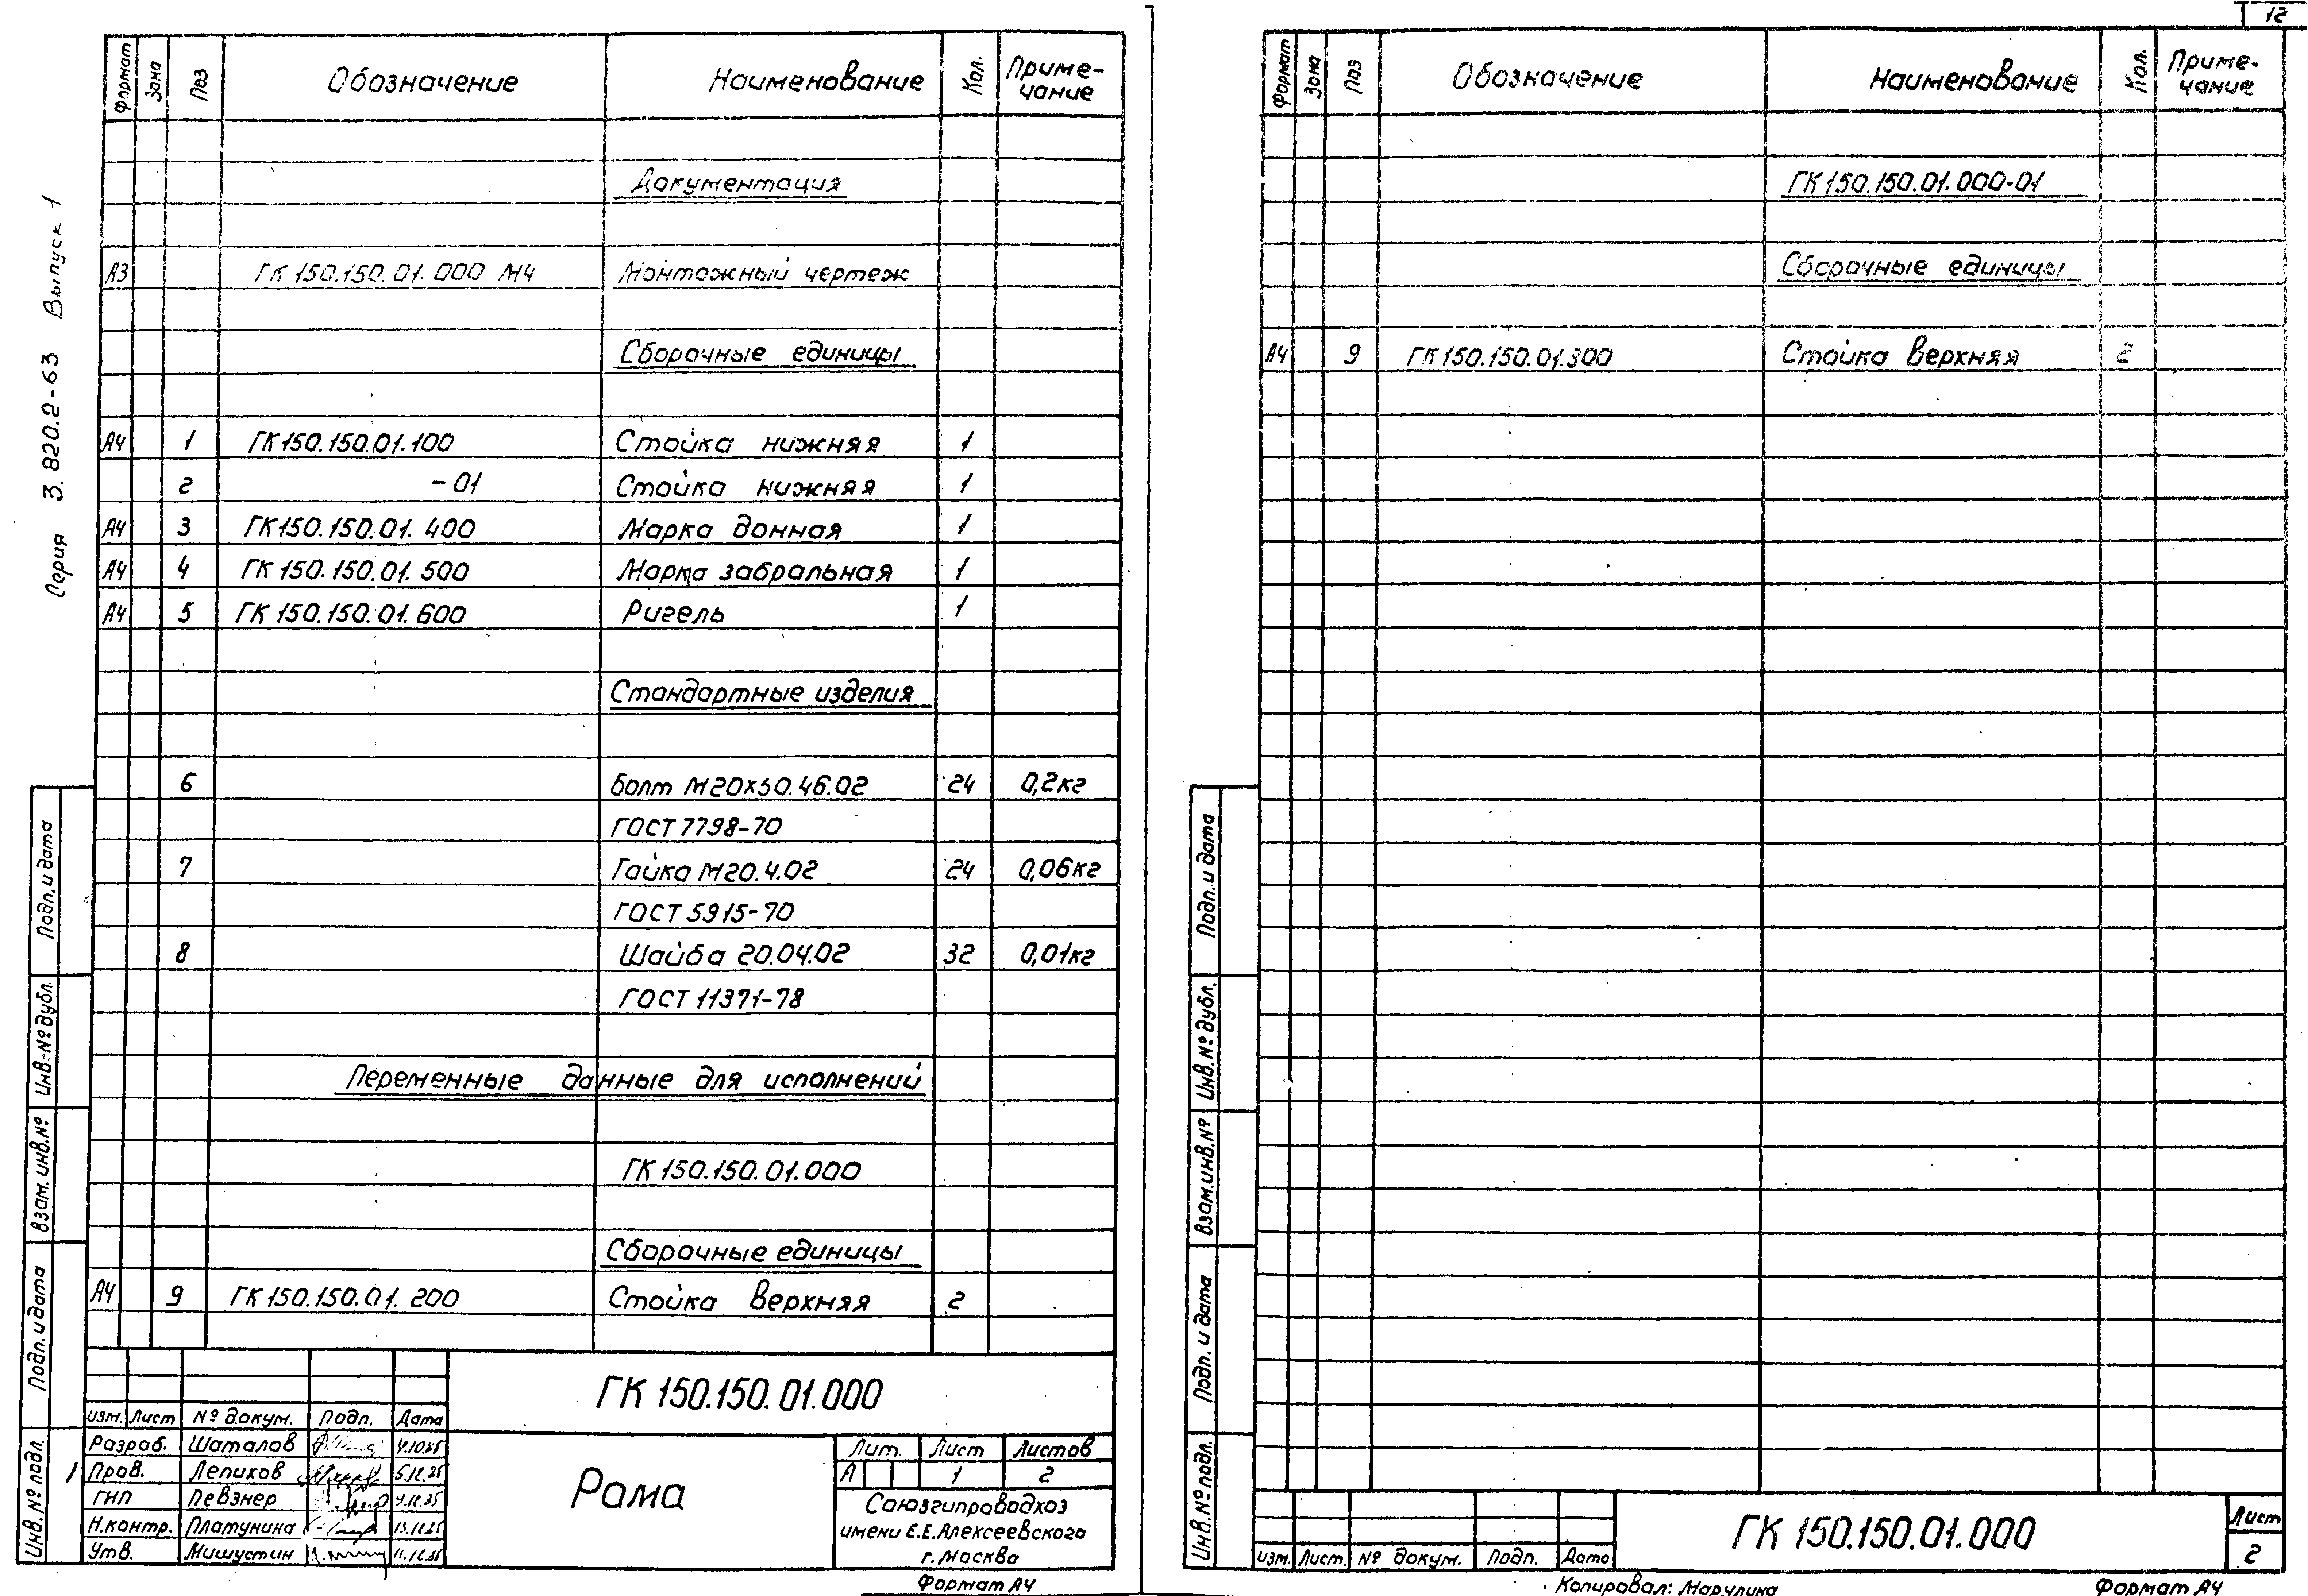 12
Серия 3.820.2-63 Выпуск 1
Формат Зона Поз Обозначение Наименование Кол. Приме-
чание
Документация
А3 ГК 150.150.01.000 МЧ Монтажный чертеж
Сборочные единицы
А4 1 ГК 150.150.01.100 Стойка нижняя 1
2 -01 Стойка нижняя 1
А4 3 ГК 150.150.01.400 Марка донная 1
А4 4 ГК 150.150.01.500 Марка забральная 1
А4 5 ГК 150.150.01.600 Ригель 1
Стандартные изделия
6 Болт М20х50.46.02 24 0,2кг
ГОСТ 7798-70
7 Гайка М20.4.02 24 0,06кг
ГОСТ 5915-70
8 Шайба 20.04.02 32 0,01кг
ГОСТ 11371-78
Переменные данные для исполнений
ГК 150.150.01.000
Сборочные единицы
А4 9 ГК 150.150.01.200 Стойка верхняя 2
Подп. и дата
Инв. № дубл.
Взам. инв. №
Подп. и дата
Инв. № подл.
1
ГК 150.150.01.000
Изм. Лист № докум. Подп. Дата
Разраб. Шаталов
Пров. Лепихов
ГИП Певзнер
Н.контр. Платунина
Утв. Мишустин
Рама
Лит. Лист Листов
А 1 2
Союзгипроводхоз
имени Е.Е.Алексеевского
г. Москва
Формат А4
Формат Зона Поз Обозначение Наименование Кол. Приме-
чание
ГК 150.150.01.000-01
Сборочные единицы
А4 9 ГК 150.150.01.300 Стойка верхняя 2
Подп. и дата
Инв. № дубл.
Взам. инв. №
Подп. и дата
Инв. № подл.
Изм. Лист. № докум. Подп. Дата
ГК 150.150.01.000
Лист
2
Копировал: Марулина
Формат А4